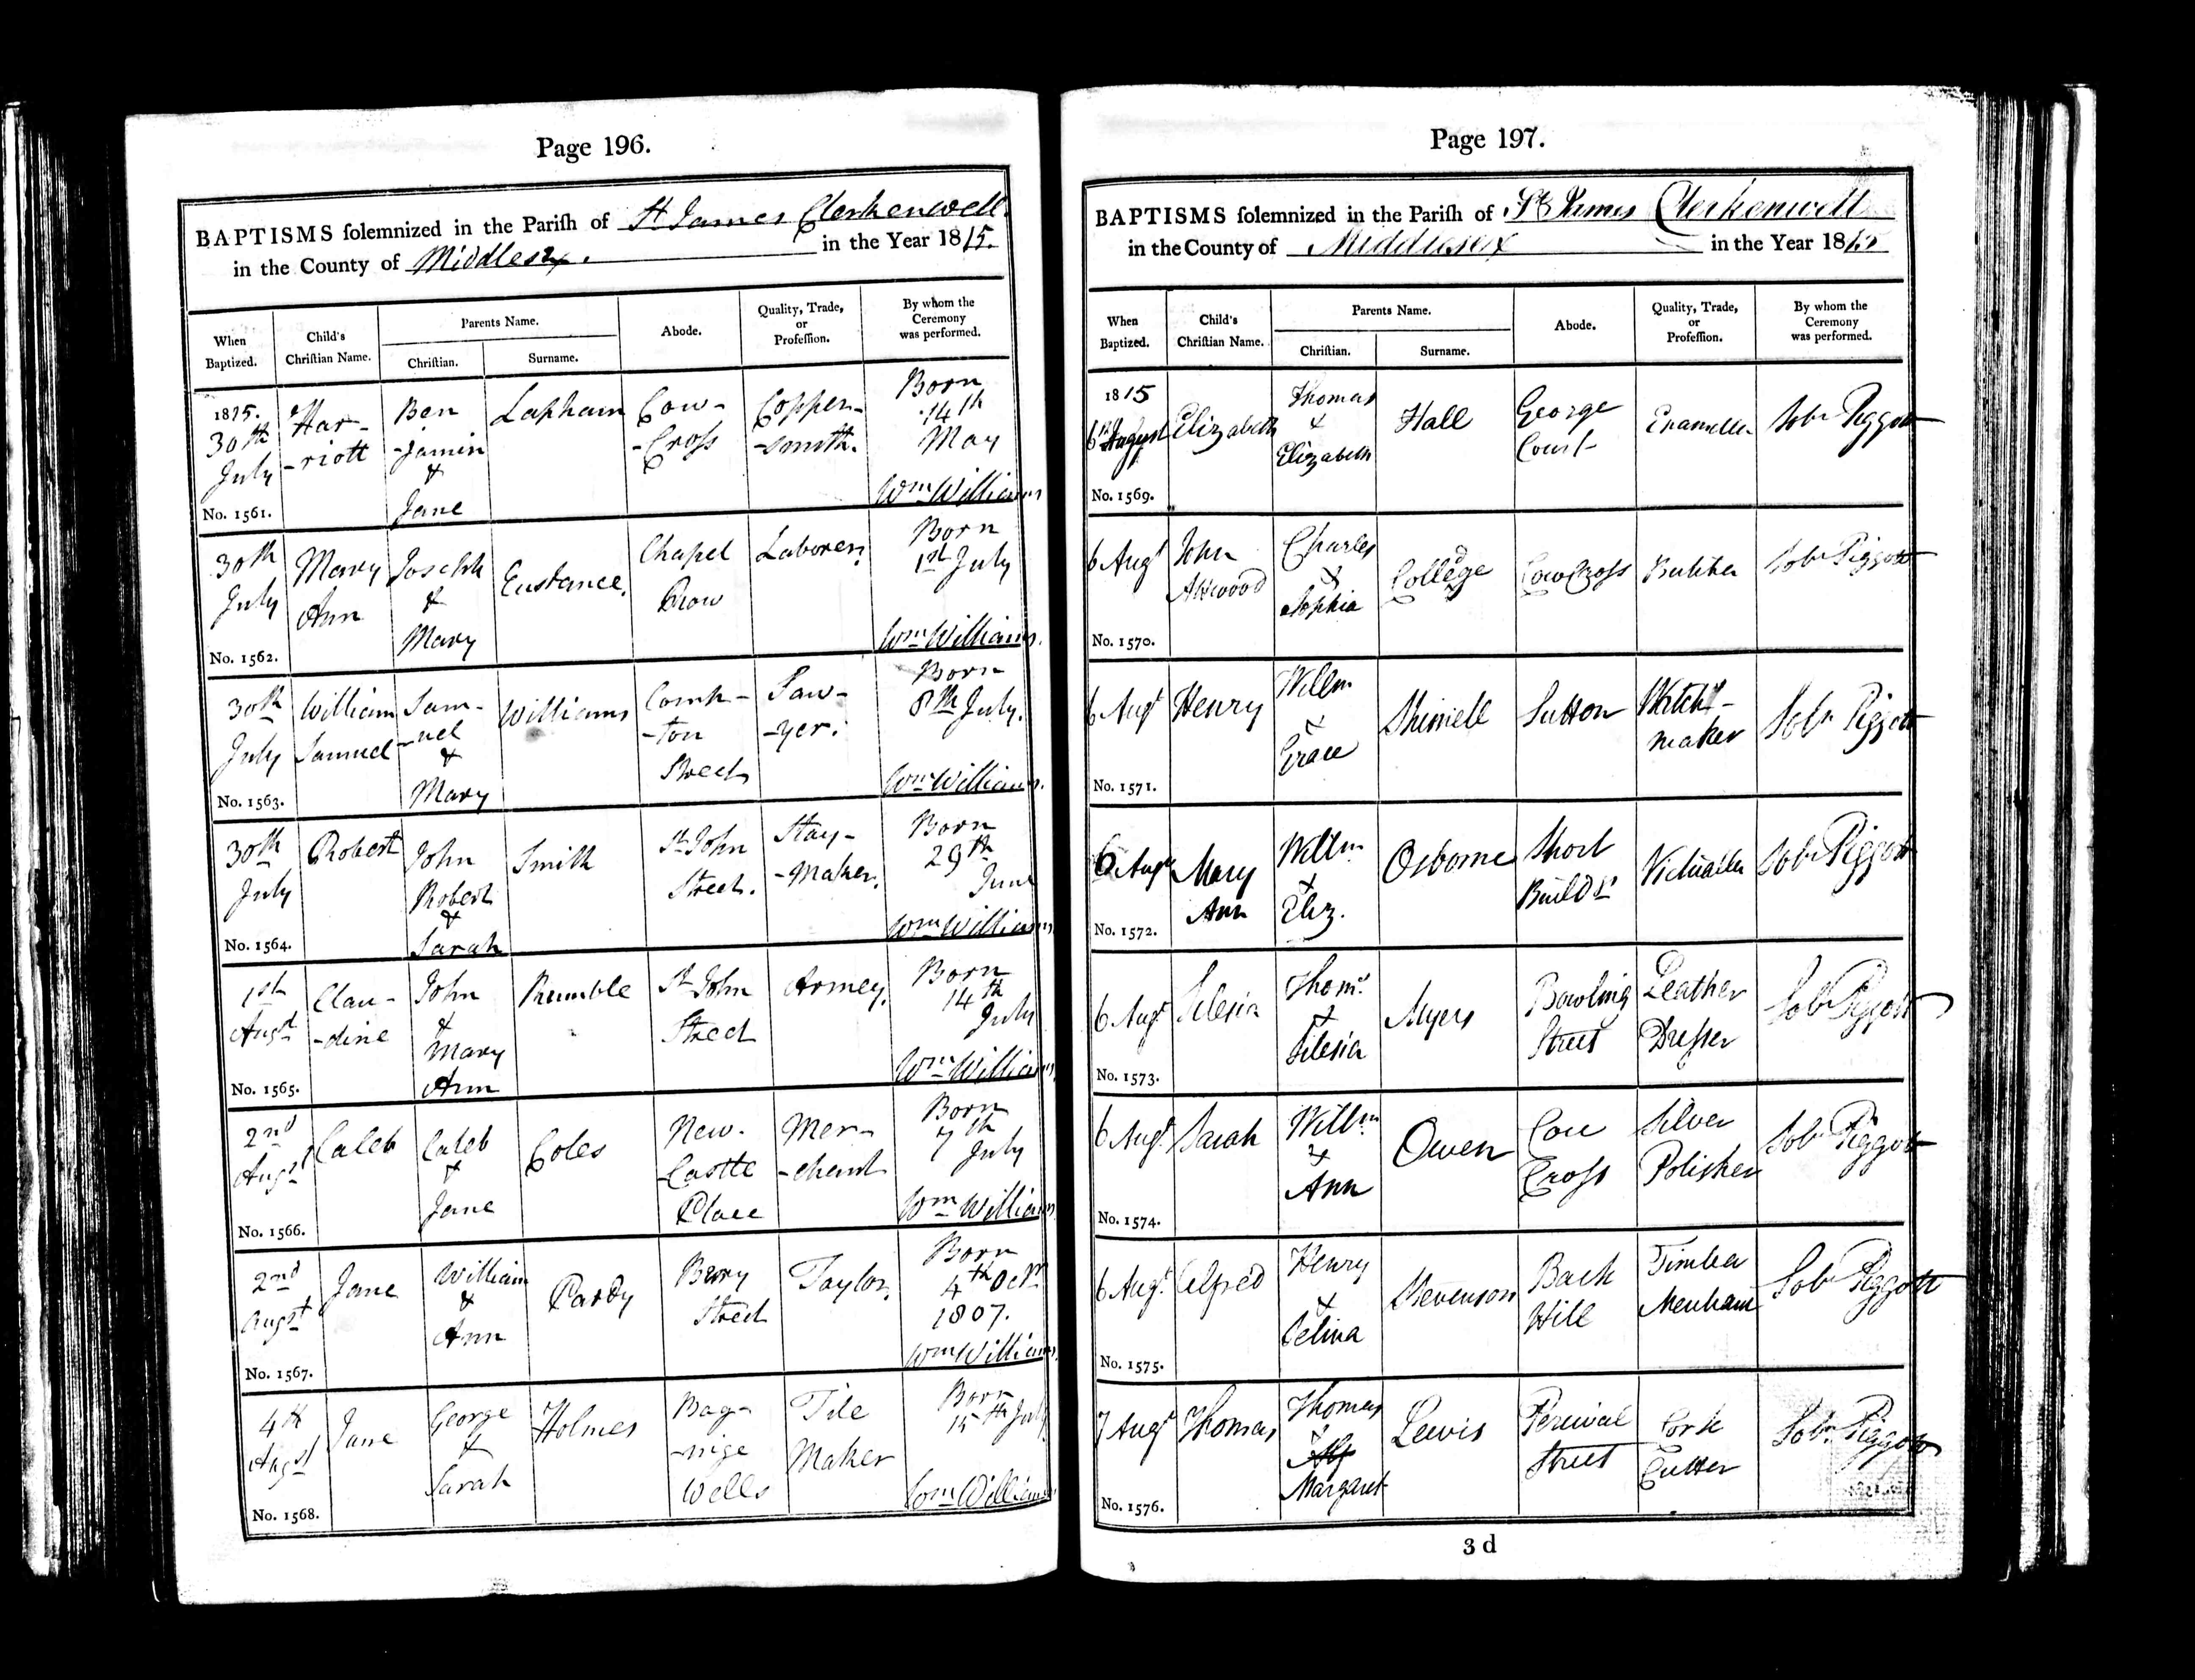 Page 196.
BAPTISMS solemnized in the Parish of St James Clerkenwell
in the County of Middlesex. in the Year 1815.
When Baptized. Child's Christian Name. Parents Name. Christian. Surname. Abode. Quality, Trade, or Profession. By whom the Ceremony was performed.
1815.
30th July
No. 1561.
Har-
-riott
Ben
-jamin
&
Jane
Lapham
Cow-
-Cross
Copper-
-smith.
Born
14th
May
Wm Williams
30th
July
No. 1562.
Mary
Ann
Joseph
&
Mary
Eustance.
Chapel
Row
Laborer.
Born
1st July
Wm Williams.
30th
July
No. 1563.
William
Samuel
Sam-
-uel
&
Mary
Williams
Comp-
-ton
Street
Saw-
-yer.
Born
8th July.
Wm Williams.
30th
July
No. 1564.
Robert
John
Robert
&
Sarah
Smith
St John
Street.
Stay-
-Maker.
Born
29th
June
Wm Williams
1st
Augst
No. 1565.
Clau-
-dine
John
&
Mary
Ann
Rumble
St John
Street
Armey.
Born
14th
July
Wm Williams
2nd
Augst
No. 1566.
Caleb
Caleb
&
Jane
Coles
New-
-Castle
Place
Mer-
-chant
Born
7th
July
Wm Williams
2nd
Augst
No. 1567.
Jane
William
&
Ann
Pardy
Berry
Street
Taylor.
Born
4th Octr
1807.
Wm Williams.
4th
Augst
No. 1568.
Jane
George
&
Sarah
Holmes
Bag-
-nige
Wells
Tile
Maker
Born
15th July
Wm Williams
Page 197.
BAPTISMS solemnized in the Parish of St James Clerkenwell
in the County of Middlesex in the Year 1815
When Baptized. Child's Christian Name. Parents Name. Christian. Surname. Abode. Quality, Trade, or Profession. By whom the Ceremony was performed.
1815
6th August
No. 1569.
Elizabeth
Thomas
&
Elizabeth
Hall
George
Court
Enameller
Soln Piggott
6 Augt
No. 1570.
John
Attwood
Charles
&
Sophia
College
Cow Cross
Butcher
Soln Piggott
6 Augt
No. 1571.
Henry
Willm
&
Grace
Sutton
Watch-
maker
Soln Piggott
6 Augt
No. 1572.
Mary
Ann
Willm
&
Eliz.
Osborne
Short
Builds
Victualler
Soln Piggott
6 Augt
No. 1573.
Silesia
Thoms
&
Silesia
Myers
Bowling
Street
Leather
Dresser
Soln Piggott
6 Augt
No. 1574.
Sarah
Willm
&
Ann
Owen
Cow
Cross
Silver
Polisher
Soln Piggott
6 Augt
No. 1575.
Alfred
Henry
&
Selina
Stevenson
Back
Hill
Timber
Merchant
Soln Piggott
7 Augt
No. 1576.
Thomas
Thomas
&
Margaret
Lewis
Percival
Street
Cork
Cutter
Soln Piggott
3 d